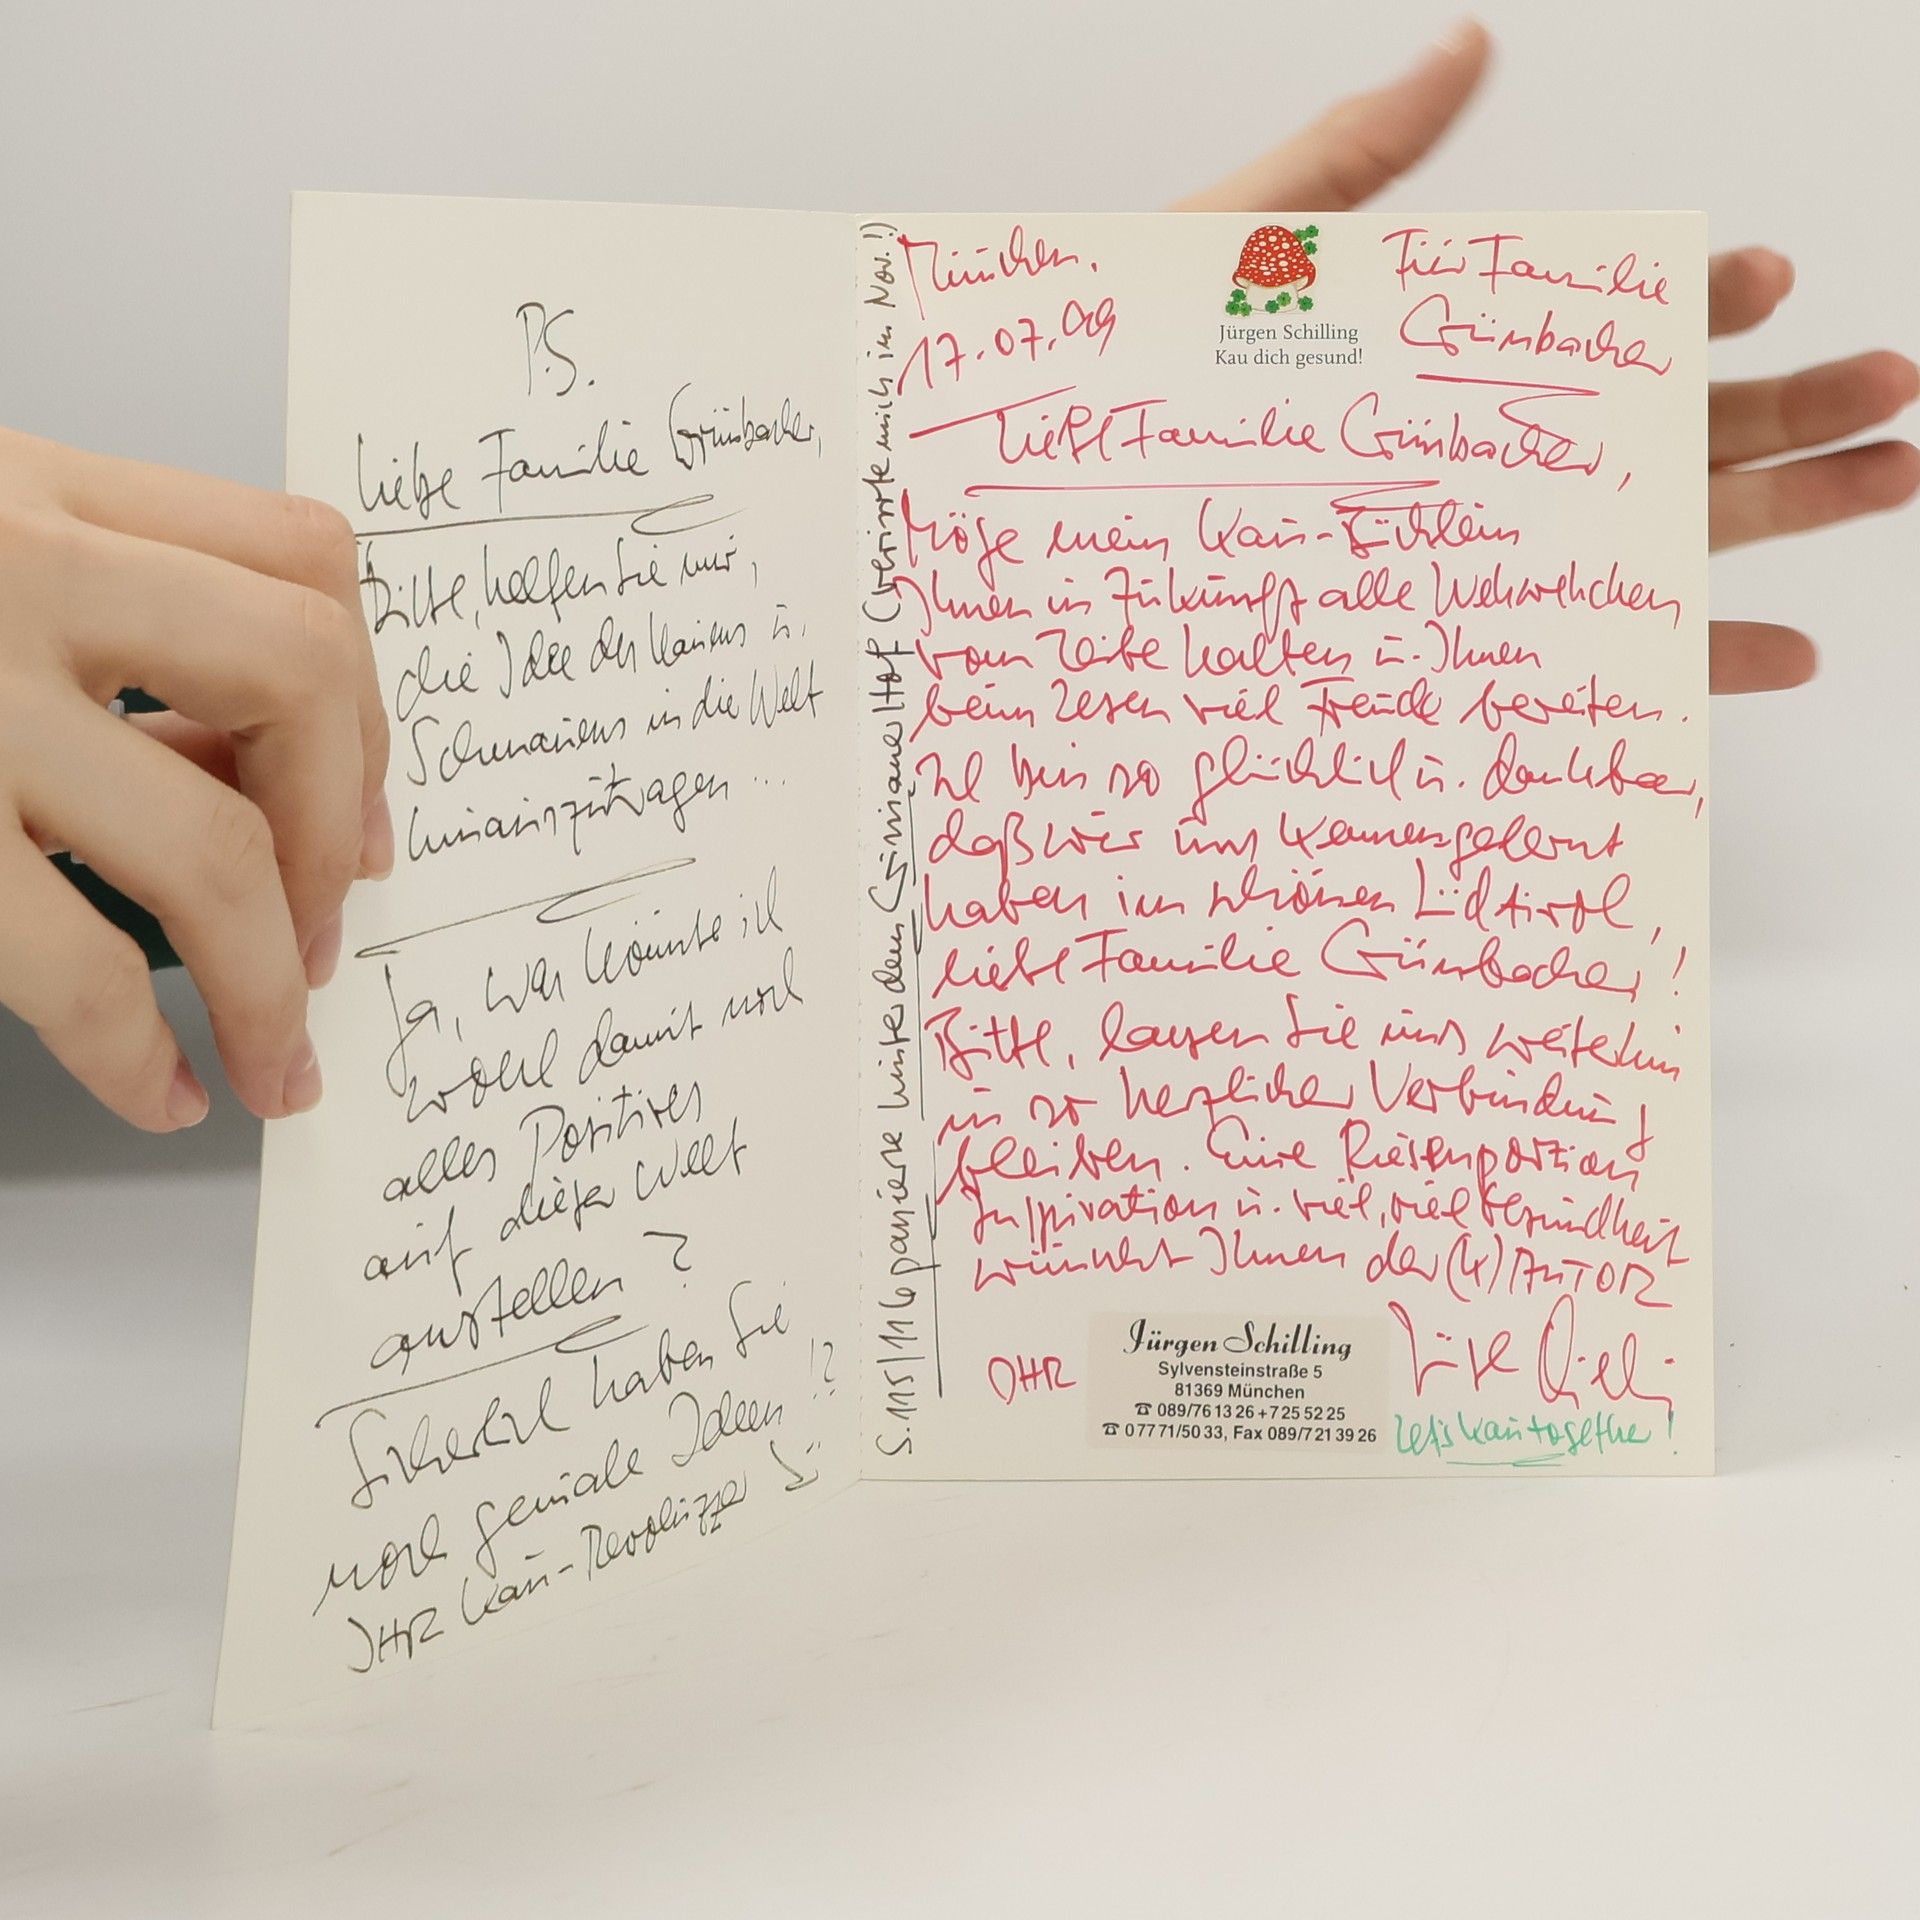 P.S.
Liebe Familie Grünbacher,
Bitte, helfen Sie mir,
die Idee des Kauens u.
Schmauens in die Welt
hinauszutragen ...
Ja, was könnte ich
wohl damit noch
alles Positives
auf dieser Welt
anstellen?
Sicherlich haben Sie
noch geniale Ideen!?
IHR Kau-Revoluzzer
S. 115/116 paniere hinter dem Grünauel Hof (verirrte mich im Nov.!)
München,
17.07.09
Jürgen Schilling
Kau dich gesund!
Für Familie
Grünbacher
Liebe Familie Grünbacher,
Möge mein Kau-Büchlein
Ihnen in Zukunft alle Wehwehchen
vom Leibe halten u. Ihnen
beim Lesen viel Freude bereiten.
Ich bin so glücklich u. dankbar,
daß wir uns kennengelernt
haben im schönen Südtirol,
liebe Familie Grünbacher!
Bitte, lassen Sie uns weiterhin
in so herzlicher Verbindung
bleiben. Eine Riesenportion
Inspiration u. viel, viel Gesundheit
wünscht Ihnen der (K)AUTOR
IHR
Jürgen Schilling
Sylvensteinstraße 5
81369 München
☎ 089/76 13 26 + 7 25 52 25
☎ 0 77 71/50 33, Fax 089/7 21 39 26
Let's kau together!